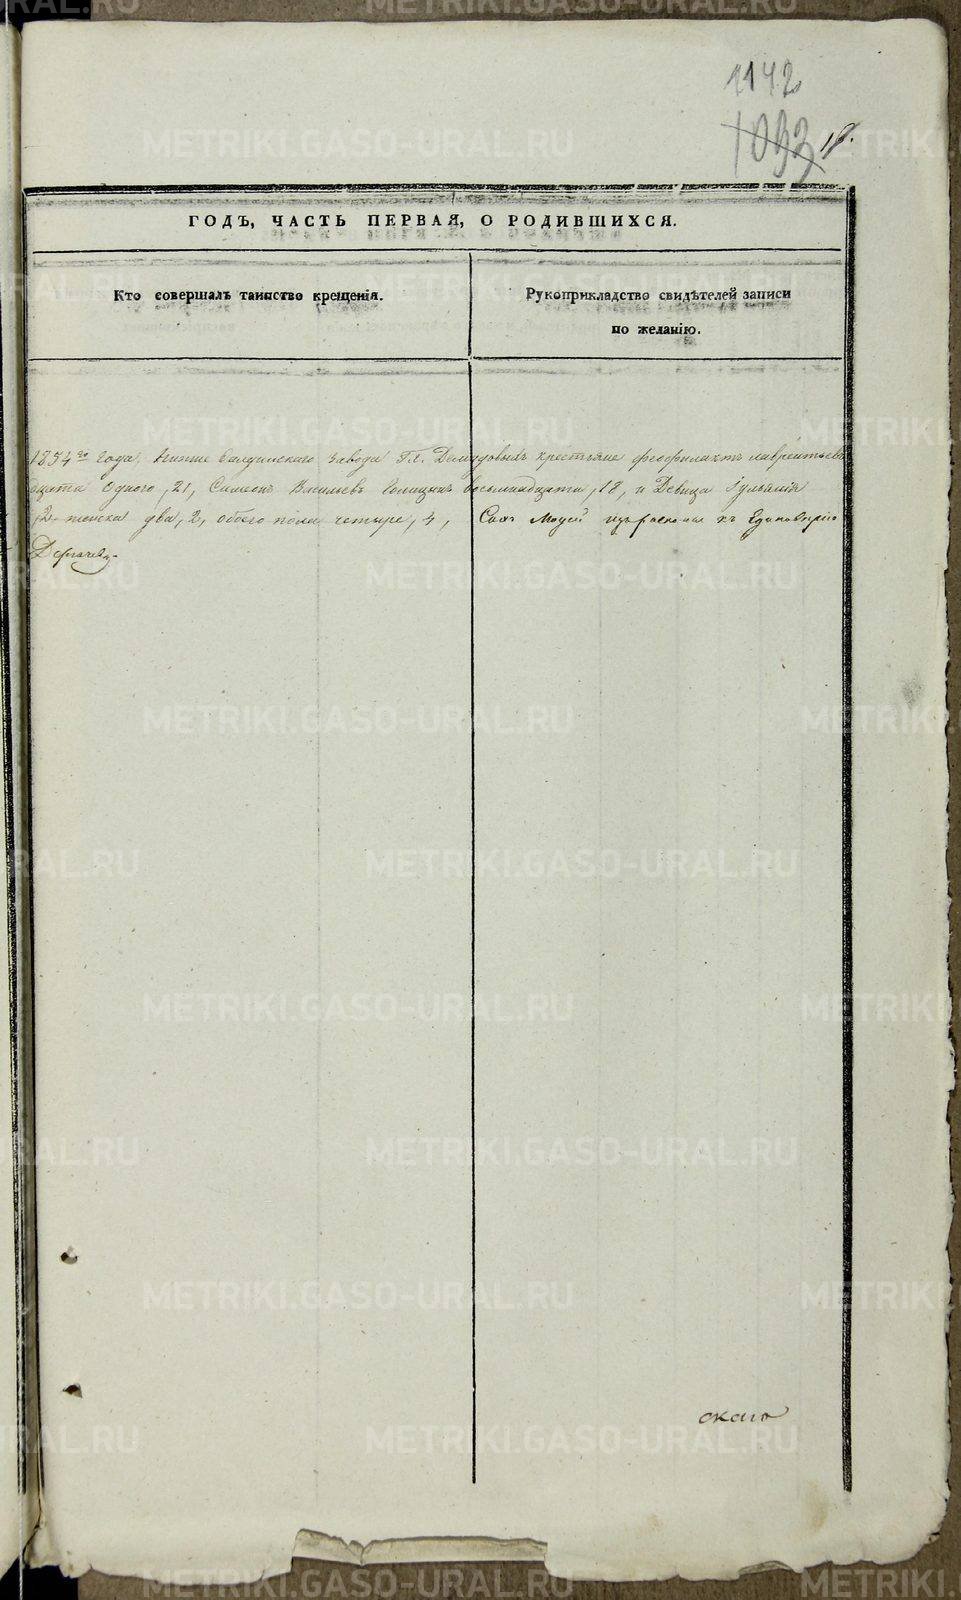 1142
1093 18.
ГОДЪ, ЧАСТЬ ПЕРВАЯ, О РОДИВШИХСЯ.
Кто совершалъ таинство крещенія.
Рукоприкладство свидѣтелей записи
по желанію.
1854го года Нижне Салдинскаго Завода Г.г. Демидовыхъ крестьяне Феофилактъ Лаврентьевъ
дцати одного, 21, Симеонъ Васильевъ восьмнадцати, 18, и Девица Іульянія
2 женска два, 2, обоего пола четыре, 4, Сихъ Людей изъ раскола къ Единоверію
скаго
METRIKI.GASO-URAL.RU